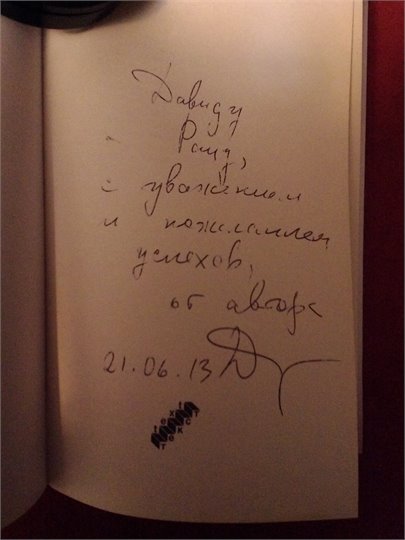 Давиду
Рауд,
с уважением
и пожеланием
успехов,
от автора
21.06.13